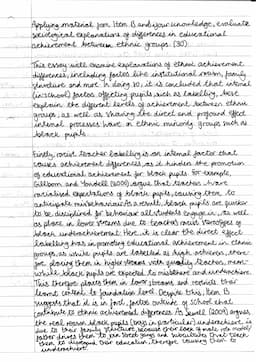 Applying material from Item B and your knowledge, evaluate
sociological explanations of differences in educational
achievement between ethnic groups. (30)
This essay will examine explanations of ethnic achievement
differences, including factors like institutional racism, family
structure and more. In doing so, it is concluded that internal
(in-school) factors affecting pupils such as labelling, best
explain the different levels of achievement between ethnic
groups, as well as showing the direct and profound effect
internal processes have on ethnic minority groups such as
black pupils.
Firstly, racist teacher labelling is an internal factor that
causes achievement differences, as it hinders the promotion
of educational achievement for black pupils. For example,
Gillborn and Youdell (2000) argue that teachers have
racialised expectations of black pupils, causing them to
anticipate misbehaviour. As a result, black pupils are quicker
to be disciplined for behaviour all students engage in. As well
as place in lower streams due to teachers racist stereotypes of
black underachievement. Here it is clear the direct effect
labelling has in promoting educational achievement in ethnic
groups, as white pupils are labelled as high achievers, more
are placed them in higher streams with quality teachers, mean-
while black pupils are expected to misbehave and underachieve.
This therefore places them in lower streams and restricts their
learnt content to foundation level. Despite this, Item B
suggests that it is in fact, factors outside of school that
contribute to ethnic achievement differences. As Sewell (2009) argues
the real reason black pupils (boys in particular) underachieve is
due to their family structure,